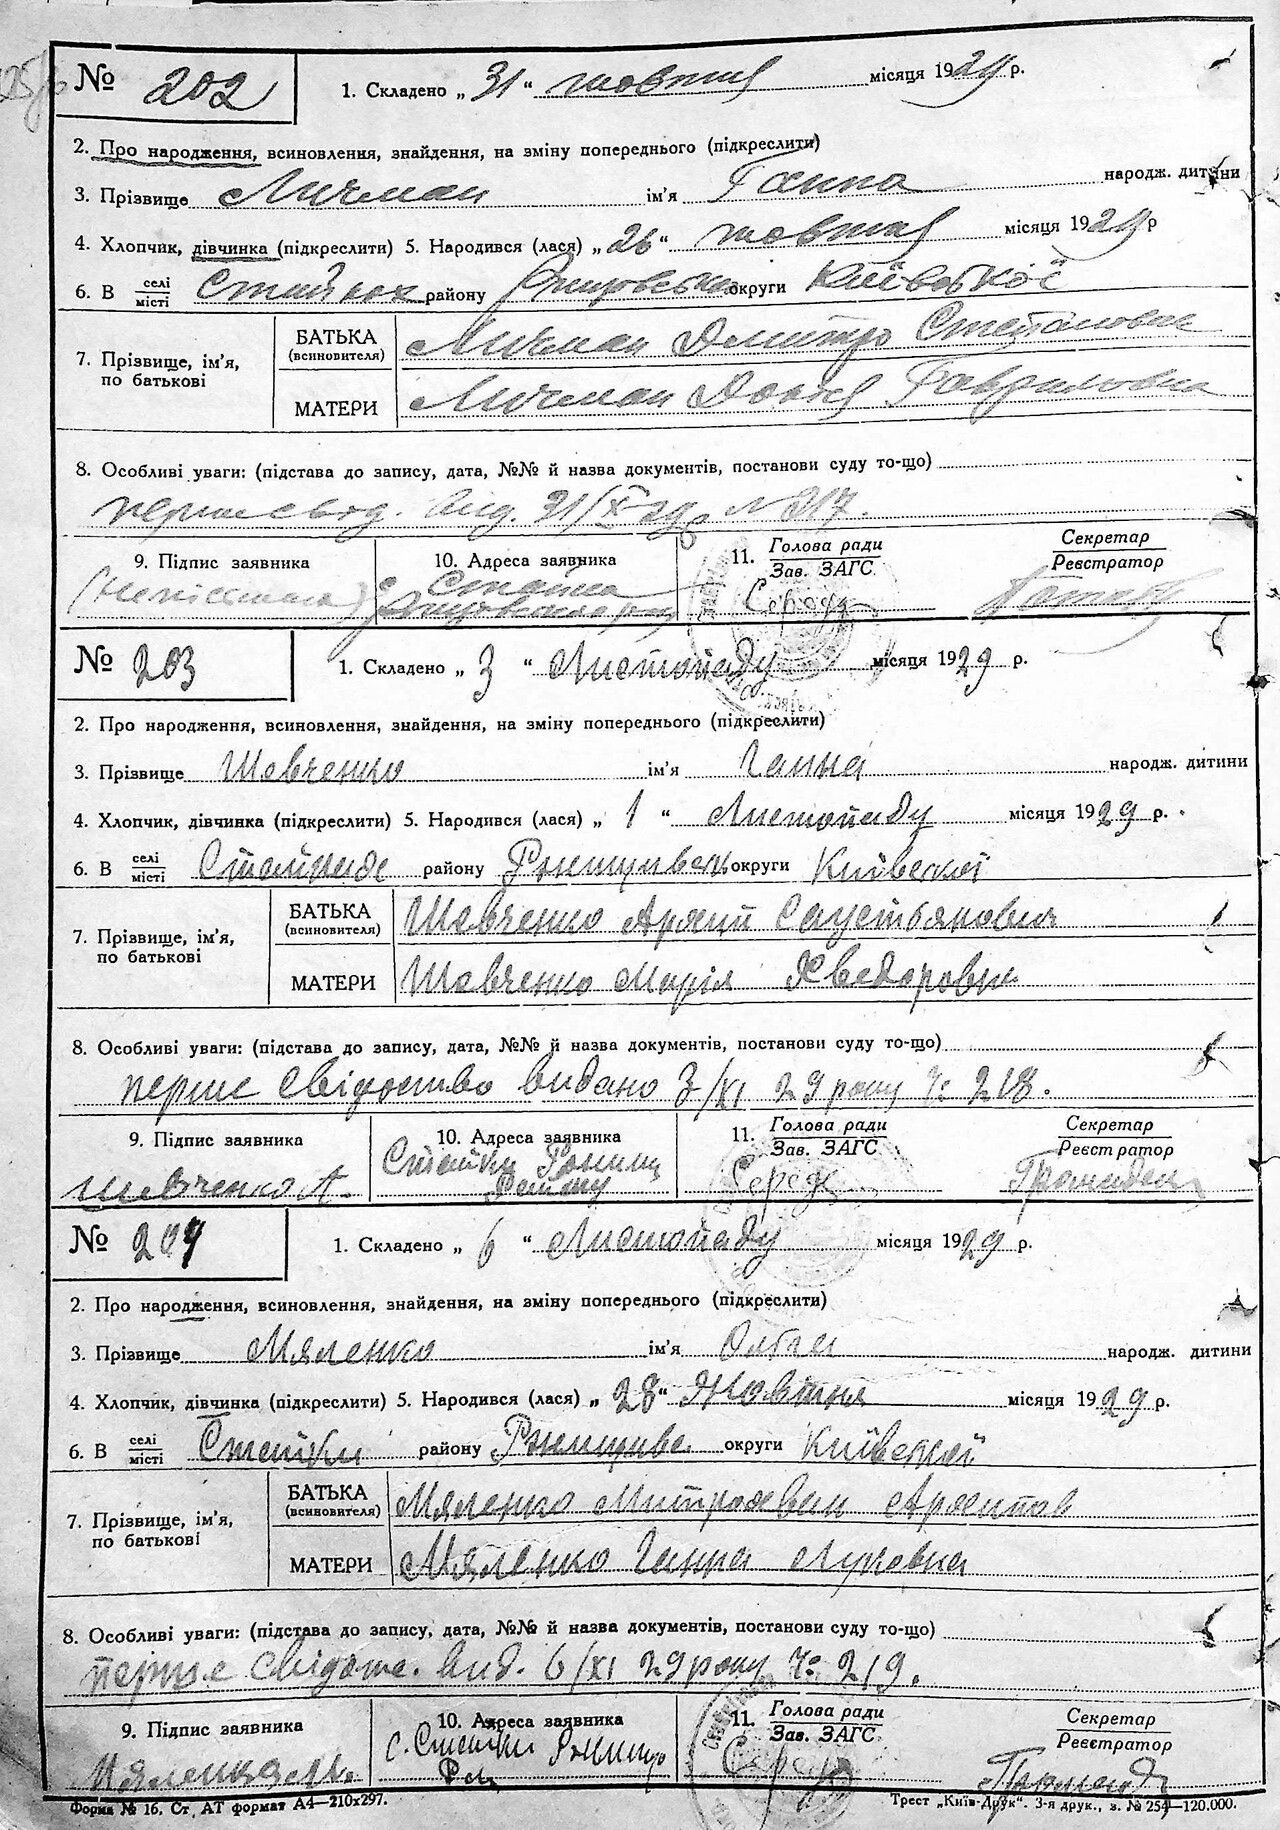 № 202 1. Складено „ 31 “ жовтня місяця 1929 р.
2. Про народження, всиновлення, знайдення, на зміну попереднього (підкреслити)
3. Прізвище Личман ім'я Ганна народж. дитини
4. Хлопчик, дівчинка (підкреслити) 5. Народився (лася) „ 26 “ жовтня місяця 1929 р
6. В селі/місті Стайках району округи Київської
7. Прізвище, ім'я, по батькові
БАТЬКА (всиновителя) Личман Дмитро Степанович
МАТЕРИ Личман Гавриловна
8. Особливі уваги: (підстава до запису, дата, №№ й назва документів, постанови суду то-що)
перше свід. вид. 31/X 29 р № 217.
9. Підпис заявника 10. Адреса заявника 11. Голова ради / Зав. ЗАГС Секретар / Реєстратор
с. Стайки Середа
№ 203 1. Складено „ 3 “ Листопаду місяця 1929 р.
2. Про народження, всиновлення, знайдення, на зміну попереднього (підкреслити)
3. Прізвище Шевченко ім'я Ганна народж. дитини
4. Хлопчик, дівчинка (підкреслити) 5. Народився (лася) „ 1 “ Листопаду місяця 1929 р.
6. В селі/місті району округи Київскої
7. Прізвище, ім'я, по батькові
БАТЬКА (всиновителя) Шевченко
МАТЕРИ Шевченко Марія Хведоровна
8. Особливі уваги: (підстава до запису, дата, №№ й назва документів, постанови суду то-що)
перше свідоство видано 3/XI 29 року ч: 218.
9. Підпис заявника 10. Адреса заявника 11. Голова ради / Зав. ЗАГС Секретар / Реєстратор
Шевченко А. Стайки Ржищ Району Середа
№ 204 1. Складено „ 6 “ Листопаду місяця 1929 р.
2. Про народження, всиновлення, знайдення, на зміну попереднього (підкреслити)
3. Прізвище Мяленко ім'я Ольга народж. дитини
4. Хлопчик, дівчинка (підкреслити) 5. Народився (лася) „ 28 “ Жовтня місяця 1929 р.
6. В селі/місті Стайки району Ржищиве округи Київскої
7. Прізвище, ім'я, по батькові
БАТЬКА (всиновителя) Мяленко
МАТЕРИ Мяленко Ганна
8. Особливі уваги: (підстава до запису, дата, №№ й назва документів, постанови суду то-що)
перше свідотс. вид. 6/XI 29 року ч: 219.
9. Підпис заявника 10. Адреса заявника 11. Голова ради / Зав. ЗАГС Секретар / Реєстратор
с. Стайки Ржищ Середа
Форма № 16. Ст. АТ формат А4—210х297. Трест „Київ-Друк“. 3-я друк., з. № 254—120.000.